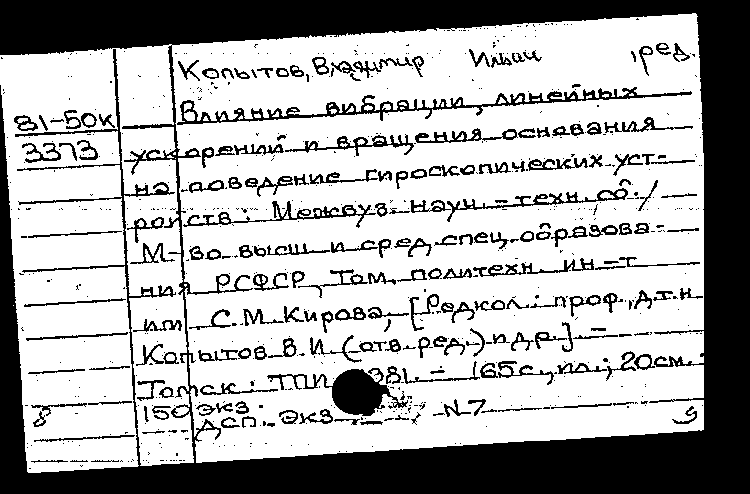 Копытов, Владимир Ильич , ред.
81-50к
3373
Влияние вибрации, линейных
ускорений и вращения основания
на поведение гироскопических уст-
ройств: Межвуз. науч. - техн. сб. /
М-во высш и сред. спец. образова-
ния РСФСР, Том. политехн. ин-т
им С. М. Кирова, [Редкол.: проф., д.т.н
Копытов В. И. (отв. ред.) и др.]. -
Томск: ТПИ 981. - 165с., ил.; 20см. :
8 150 экз.
ДСП. Экз N7